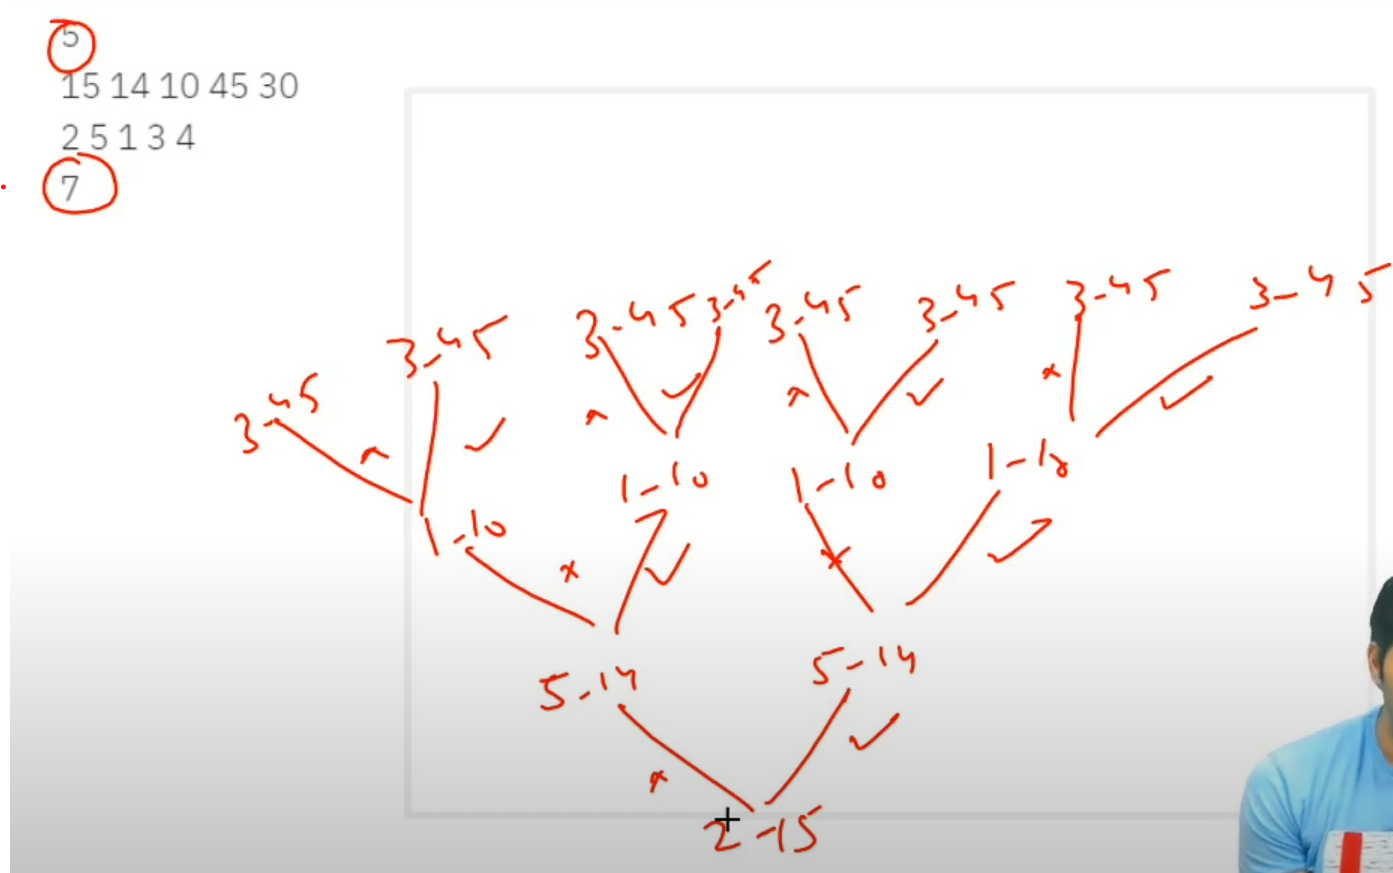 5
15 14 10 45 30
2 5 1 3 4
7
3-45 3-45 3-45 3-45 3-45 3-45 3-45 3-45
1-10 1-10 1-10 1-10
5-14 5-14
2-15